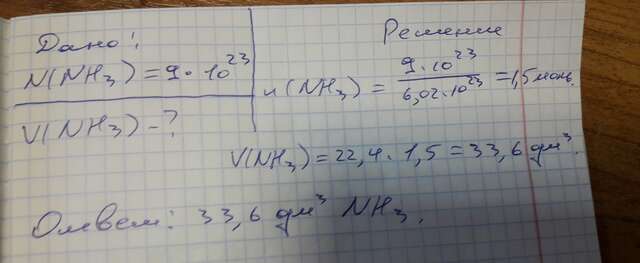 Дано:
N(NH₃) = 9 · 10²³
V(NH₃) - ?
Решение
n(NH₃) = 9·10²³ / 6,02·10²³ = 1,5 моль.
V(NH₃) = 22,4 · 1,5 = 33,6 дм³.
Ответ: 33,6 дм³ NH₃.